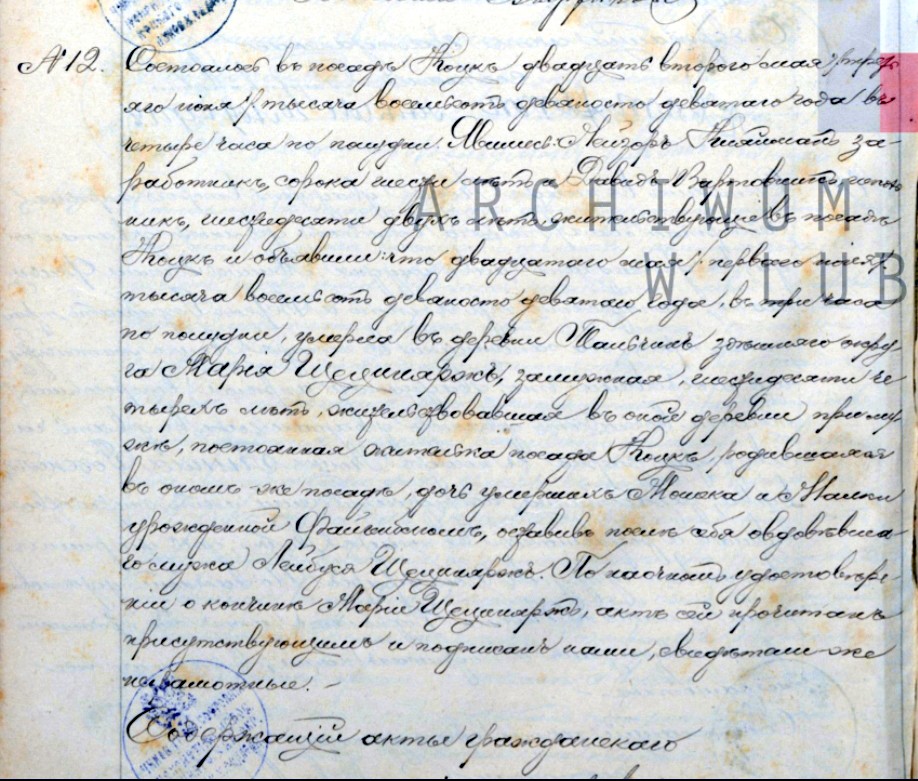 №12. Состоялось въ посадѣ Коцкъ двадцать второго мая /треть
яго іюня/ тысяча восемьсотъ девяносто девятаго года въ
четыре часа по полудни. Явились: Лейзоръ за-
работникъ, сорока шести лѣтъ и Давидъ
никъ, шестидесяти двухъ лѣтъ, жительствующіе въ посадѣ
Коцкъ и объявили: что двадцатаго мая /перваго іюня/
тысяча восемьсотъ девяносто девятаго года, въ три часа
по полудни, умерла въ деревни здѣшняго окру-
га Марія замужная, шестидесяти че
тырехъ лѣтъ, жительствовавшая въ оной деревни при му-
жѣ, постоянная жителька посада Коцкъ, родившаяся
въ ономъ-же посадѣ, дочь умершихъ и
урожденной оставивъ послѣ себя овдовѣвша-
го мужа Лейбуся По наочномъ удостовѣре-
ніи о кончинѣ Маріи актъ сей прочитанъ
присутствующимъ и подписанъ нами, свидѣтели же
неграмотные. -
Содержащій акты гражданскаго
ARCHIWUM
W LUB